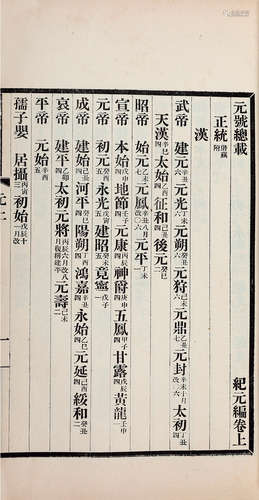 紀元編卷上
元號總載
正統 僭竊附
漢
武帝 建元辛丑六 元光丁未六 元朔癸丑六 元狩己未六 元鼎乙丑六 元封辛未十月改六 太初丁丑四
天漢辛巳四 太始乙酉四 征和己丑四 後元癸巳二
昭帝 始元乙未六 元鳳辛丑八月改六 元平丁未一
宣帝 本始戊申四 地節壬子四 元康丙辰四 神爵庚申四 五鳳甲子四 甘露戊辰四 黃龍壬申一
元帝 初元癸酉五 永光戊寅五 建昭癸未五 竟寧戊子一
成帝 建始己丑四 河平癸巳四 陽朔丁酉四 鴻嘉辛丑四 永始乙巳四 元延己酉四 綏和癸丑二
哀帝 建平乙卯四 太初元將丙辰六月改八月復稱建平 元壽己未二
平帝 元始辛酉五
孺子嬰 居攝丙寅三 初始戊辰十一月改